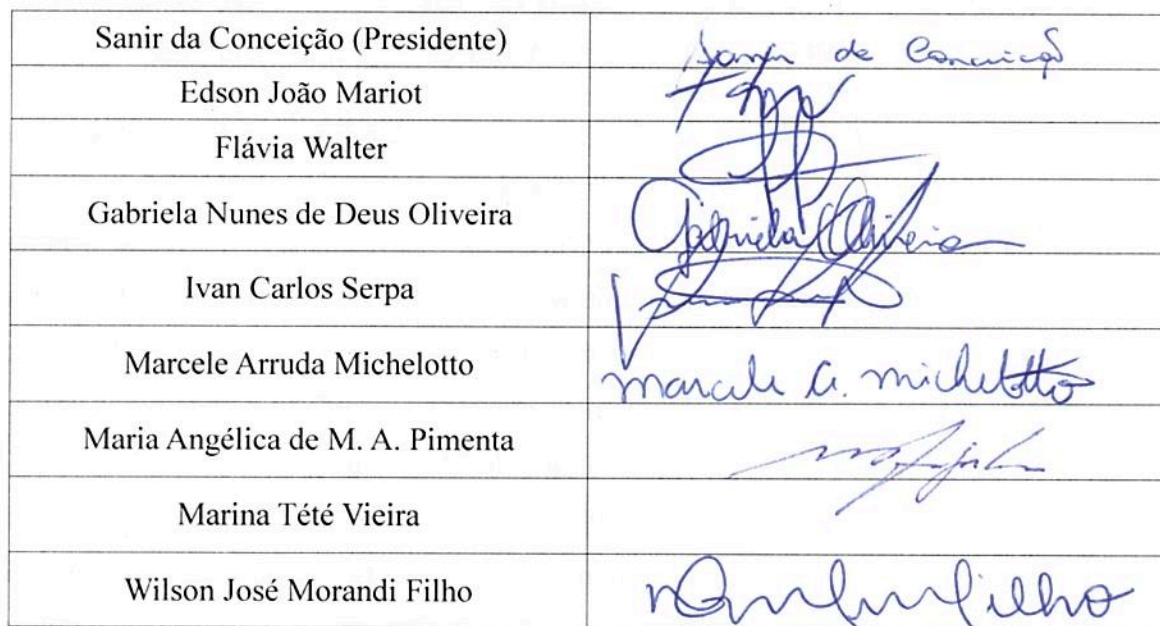 Sanir da Conceição (Presidente) Sanir da Conceição
Edson João Mariot
Flávia Walter
Gabriela Nunes de Deus Oliveira Gabriela Oliveira
Ivan Carlos Serpa
Marcele Arruda Michelotto Marcele A. Michelotto
Maria Angélica de M. A. Pimenta
Marina Tété Vieira
Wilson José Morandi Filho filho